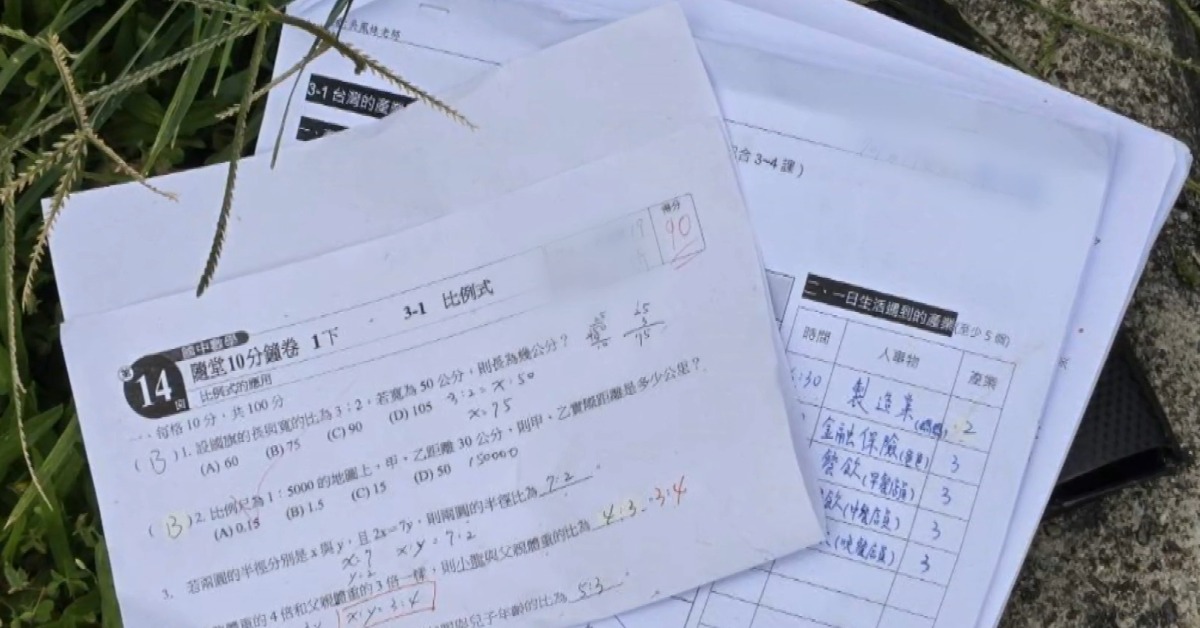 吳鳳綾老師
3-1 台灣的產業
合 3~4 課)
得分
90
國中數學
第14回
隨堂10分鐘卷 1下
3-1 比例式
比例式的應用
一、每格 10 分,共 100 分
(B)1. 設國旗的長與寬的比為 3:2,若寬為 50 公分,則長為幾公分?
(A) 60 (B) 75 (C) 90 (D) 105
3:2=x:50
x=75
(B)2. 比例尺為 1:5000 的地圖上,甲、乙距離 30 公分,則甲、乙實際距離是多少公里?
(A) 0.15 (B) 1.5 (C) 15 (D) 50
150000
3. 若兩圓的半徑分別是 x 與 y,且 2x=7y,則兩圓的半徑比為 7:2
x:y=7:2
體重的 4 倍和父親體重的 3 倍一樣,則小龍與父親體重的比為 4:3 3:4
x:y=3:4
與兒子年齡的比為 5:3
二、一日生活遇到的產業(至少 5 個)
時間 人事物 產業
:30 製造業 2
金融保險 3
餐飲(早餐店員) 3
飲(中餐店員) 3
(晚餐店員) 3